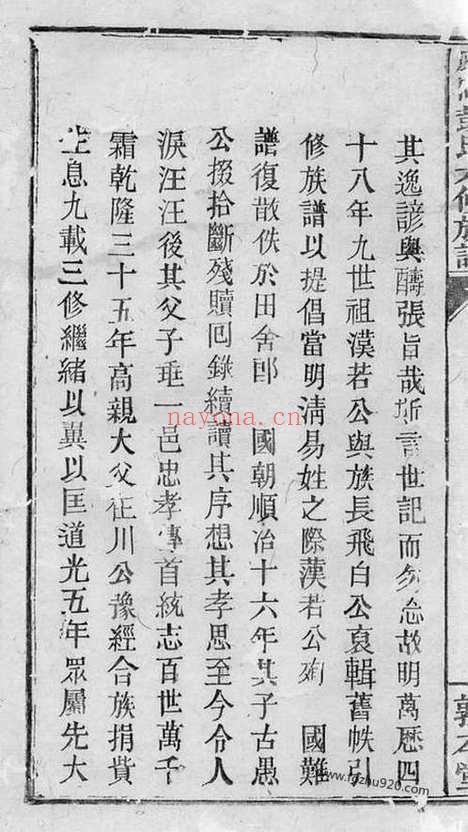 其逸諺與醻張旨哉斯言世記而勿忘故明萬厯四
十八年九世祖漢若公與族長飛白公裒輯舊帙引
修族譜以提倡當明淸易姓之際漢若公殉 國難
譜復散佚於田舍郎 國朝順治十六年其子古愚
公掇拾斷殘贖回錄續讀其序想其孝思至今令人
淚汪汪後其父子垂一邑忠孝傳首統志百世萬千
霜乾隆三十五年高親大父在川公豫經合族捐貲
生息九載三修繼緒以異以匡道光五年眾屬先大
氏六修族譜
敦
堂
nayona.cn
www.fgzhu920.com